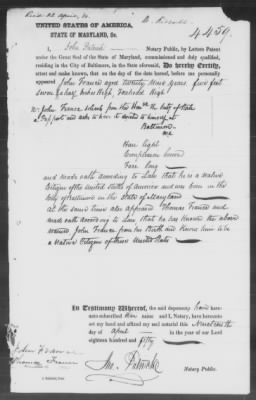 4459
UNITED STATES OF AMERICA,
STATE OF MARYLAND, Sc.
I John Notary Public, by Letters Patent
under the Great Seal of the State of Maryland, commissioned and duly qualified,
residing in the City of Baltimore, in the State aforesaid, Do hereby Certify,
attest and make known, that on the day of the date hereof, before me personally
appeared John France aged twenty nine years five feet
seven inches high, forehead High
John France from the Hon the Secy of State
a Passport and asks to him to himself at
Baltimore
Md
Hair light
Complexion brown
Face long
and made oath according to Law that he is a native
Citizen of the United States of America and was born in the
City of Baltimore in the State of Maryland
At the same time also appeared Thomas France and
made oath according to Law that he has known the above
named John France from his Birth and knows him to be
a Native Citizen of these United States
In Testimony Whereof, the said deponent have here-
unto subscribed their name and I, Notary, have hereunto
set my hand and affixed my seal notarial this Nineteenth
day of April in the year of our Lord
eighteen hundred and fifty
John France
Thomas France
Jno.
Notary Public.